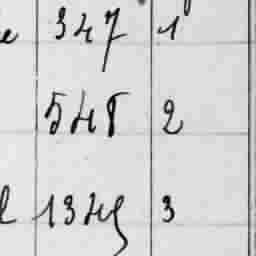 e 347 1
548 2
l 1349 3